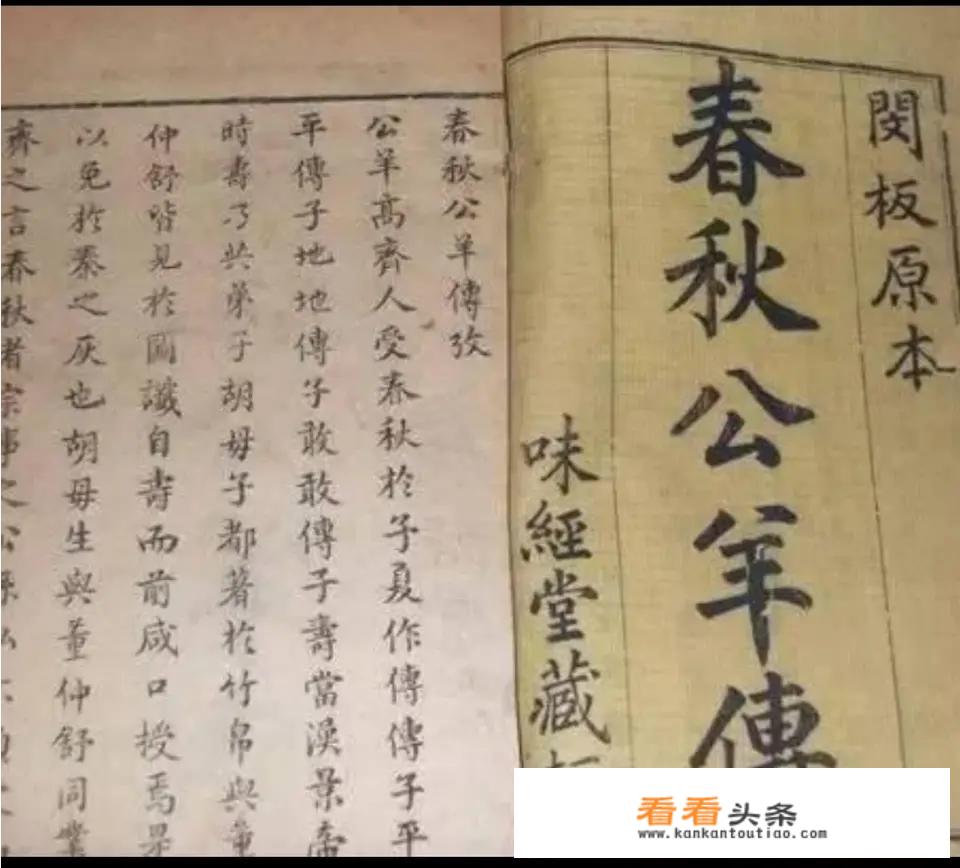 閔板原本
春秋公羊傳
味經堂藏
春秋公羊傳攷
公羊高齊人受春秋於子夏作傳傳子平
平傳子地地傳子敢敢傳子壽當漢景帝
時壽乃共弟子胡毋子都著於竹帛與董
仲舒皆見於圖讖自壽而前咸口授焉是
以免於秦之灰也胡毋生與董仲舒同業
齊之言春秋者宗事之公孫弘
看看头条
www.kankantoutiao.com